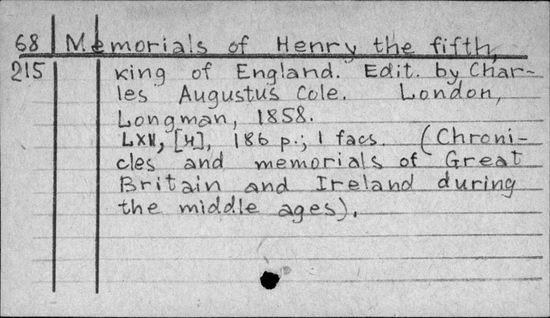 68 Memorials of Henry the fifth,
215 king of England. Edit. by Char-
les Augustus Cole. London,
Longman, 1858.
LXII, [4], 186 p.; 1 facs. (Chroni-
cles and memorials of Great
Britain and Ireland during
the middle ages).